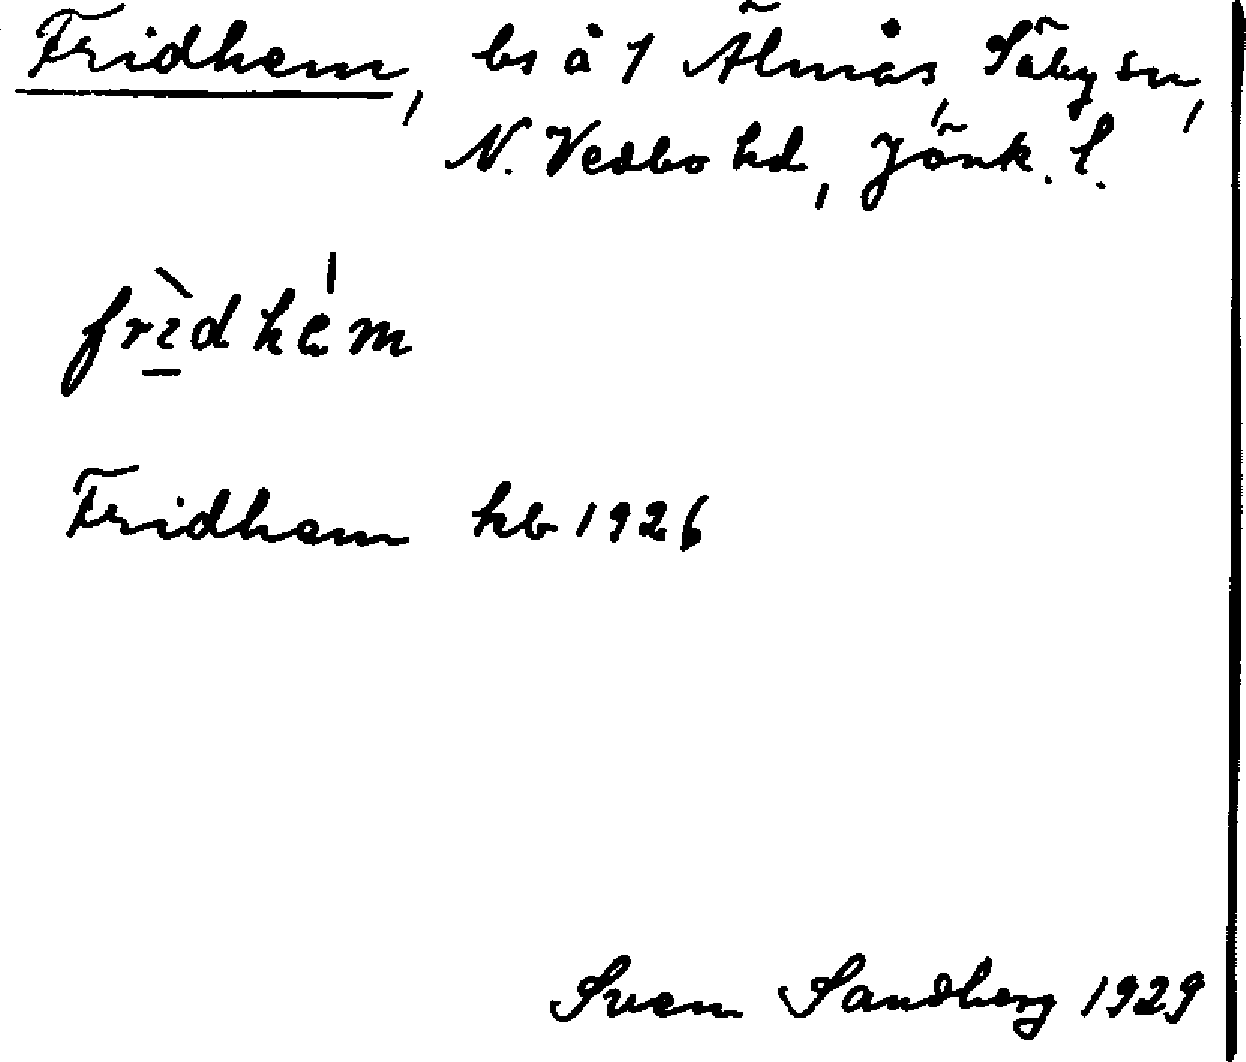 Fridhem, bs å 1 Älmås, Säby sn,
N. Vedbo hd, Jönk. l.
frìdhém
Fridhem kb 1926
Sven Sandberg 1929